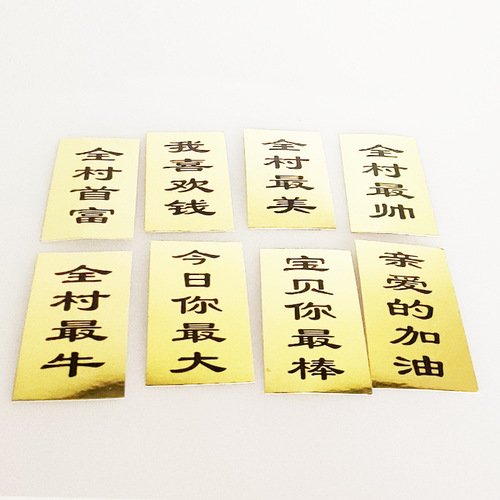 全村首富
我喜欢钱
全村最美
全村最帅
全村最牛
今日你最大
宝贝你最棒
亲爱的加油